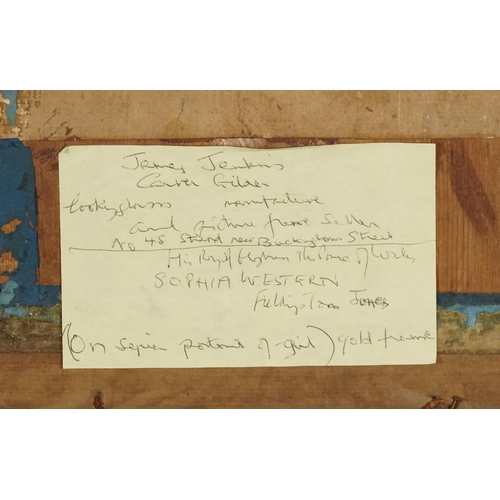 James Jenkins
Carver Gilder
Lookingglass manufacture
and picture frame Seller
No 45 Strand near Buckingham Street
His Royal Highness the Prince of Wales
SOPHIA WESTERN
Fielding's Tom Jones
(On sepia portrait of girl) gold frame